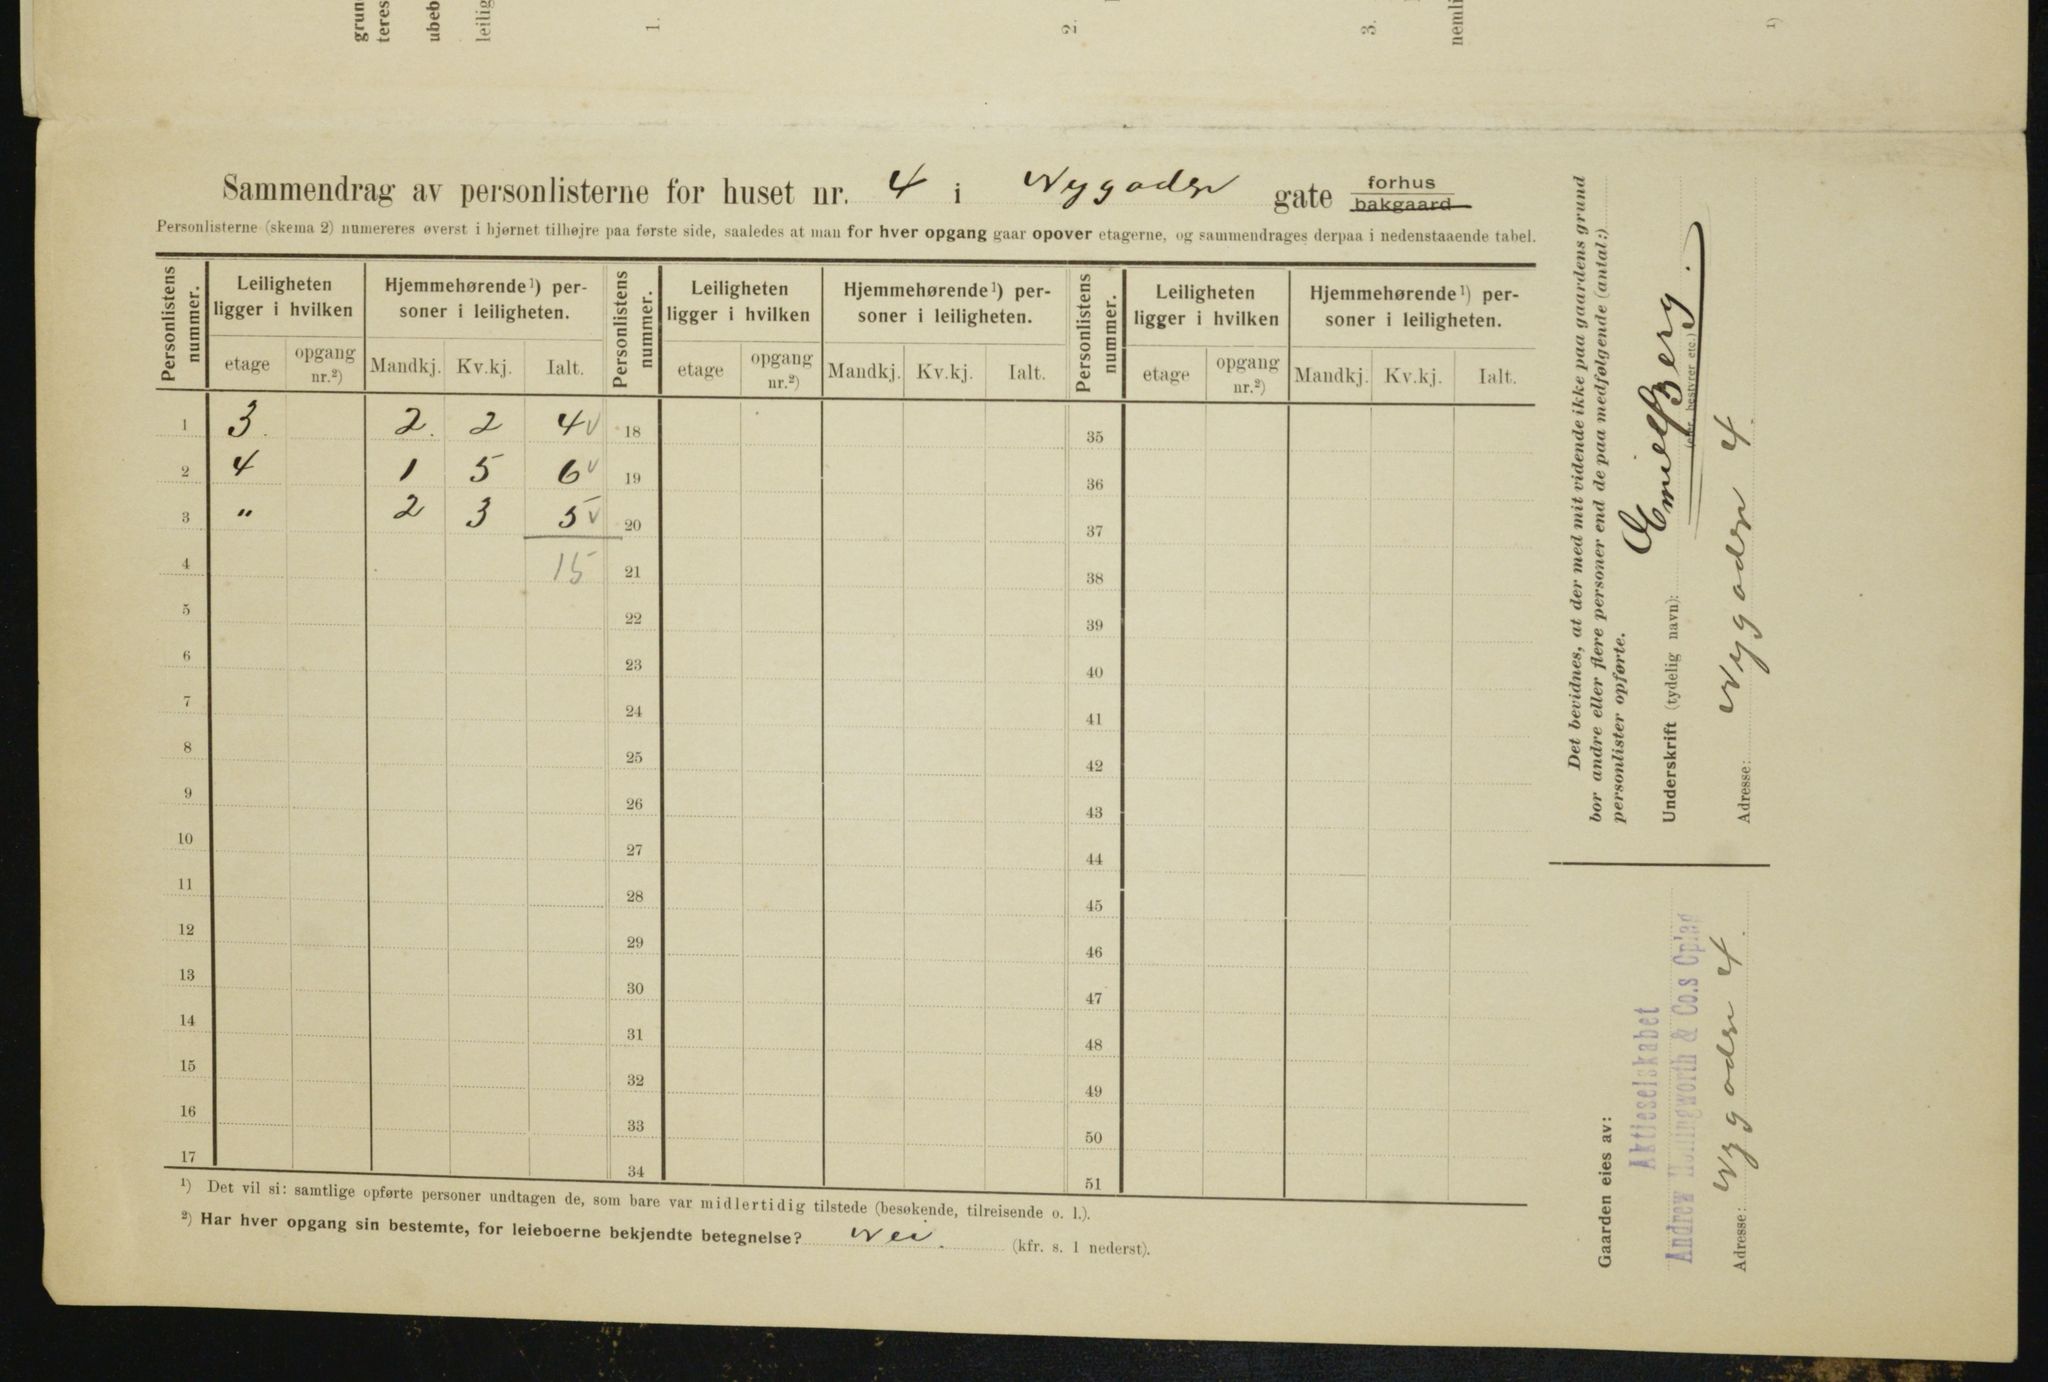 grun
teres
ubeb
leilig
1.
2.
3.
nemli
1)
Sammendrag av personlisterne for huset nr. 4 i Nygaden gate forhus bakgaard
Personlisterne (skema 2) numereres øverst i hjørnet tilhøjre paa første side, saaledes at man for hver opgang gaar opover etagerne, og sammendrages derpaa i nedenstaaende tabel.
Personlistens nummer. Leiligheten ligger i hvilken Hjemmehørende¹) personer i leiligheten. Personlistens nummer. Leiligheten ligger i hvilken Hjemmehørende¹) personer i leiligheten. Personlistens nummer. Leiligheten ligger i hvilken Hjemmehørende¹) personer i leiligheten.
etage opgang nr.²) Mandkj. Kv.kj. Ialt. etage opgang nr.²) Mandkj. Kv.kj. Ialt. etage opgang nr.²) Mandkj. Kv.kj. Ialt.
1 3. 2. 2 4 v 18 35
2 4 1 5 6 v 19 36
3 " 2 3 5 v 20 37
4 15 21 38
5 22 39
6 23 40
7 24 41
8 25 42
9 26 43
10 27 44
11 28 45
12 29 46
13 30 47
14 31 48
15 32 49
16 33 50
17 34 51
¹) Det vil si: samtlige opførte personer undtagen de, som bare var midlertidig tilstede (besøkende, tilreisende o. l.).
²) Har hver opgang sin bestemte, for leieboerne bekjendte betegnelse? Nei. (kfr. s. 1 nederst).
Det bevidnes, at der med mit vidende ikke paa gaardens grund
bor andre eller flere personer end de paa medfølgende (antal:)
personlister opførte.
Underskrift (tydelig navn): Emil Berg.
(eier, bestyrer etc.)
Adresse: Nygaden 4.
Gaarden eies av:
Aktieselskabet
Andrew Hollingworth & Co.s Oplag
Adresse: Nygaden 4.